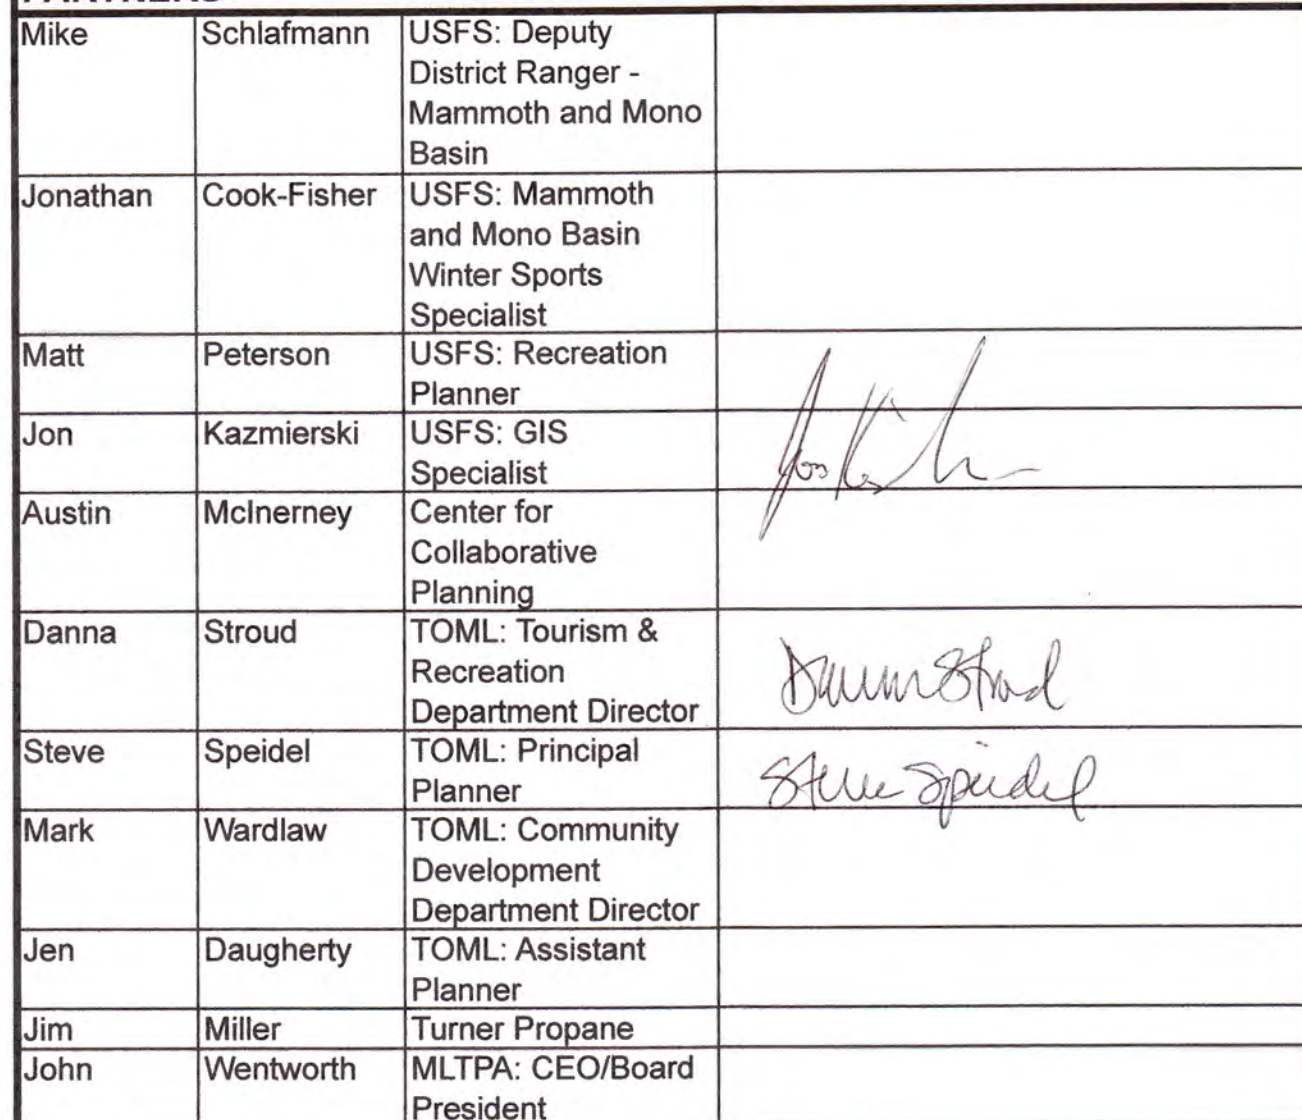 PARTNERS
Mike Schlafmann USFS: Deputy
District Ranger -
Mammoth and Mono
Basin
Jonathan Cook-Fisher USFS: Mammoth
and Mono Basin
Winter Sports
Specialist
Matt Peterson USFS: Recreation
Planner
Jon Kazmierski USFS: GIS
Specialist
Austin McInerney Center for
Collaborative
Planning
Danna Stroud TOML: Tourism &
Recreation
Department Director
Danna Stroud
Steve Speidel TOML: Principal
Planner
Steve Speidel
Mark Wardlaw TOML: Community
Development
Department Director
Jen Daugherty TOML: Assistant
Planner
Jim Miller Turner Propane
John Wentworth MLTPA: CEO/Board
President